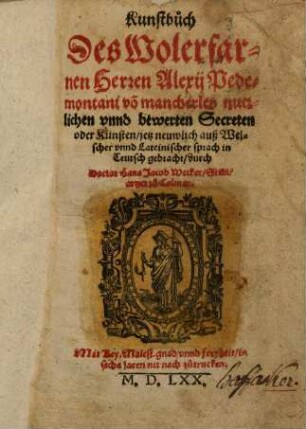 Kunstbuͤch
Des Wolerfar-
nen Herren Alexij Pede-
montani võ mancherley nutz-
lichen vnnd bewerten Secreten
oder Künsten / jetz newlich auß Wel-
scher vnnd Lateinischer sprach in
Teutsch gebracht / durch
Doctor Hans Jacob Wecker /
zů Colmar.
Mit Key. Maiest. gnad vnnd freyheit / in
sechs jaren nit nach zůtrucken.
M. D. LXX.